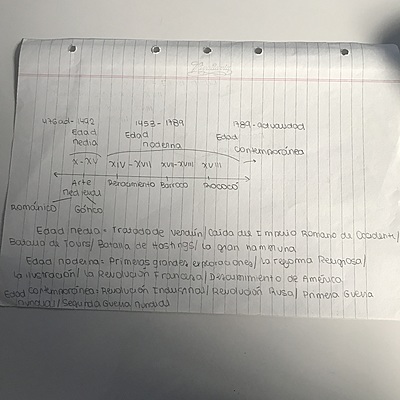 476ad-1492
Edad
media
1453 - 1789
Edad
moderna
1789-actualidad
Edad
contemporánea
X-XV
XIV - XVII
XVII-XVIII
XVIII
Arte
medieval
Renacimiento
Barroco
Rococó
Románico
Gótico
Edad media = Tratado de Verdún/ Caída del Imperio Romano de Occidente/
Batalla de Tours/ Batalla de Hastings/ La gran hambruna
Edad moderna = Primeras grandes exploraciones/ La reforma Religiosa/
la ilustración/ La Revolución Francesa/ Descubrimiento de América
Edad Contemporánea= Revolución Industrial/ Revolución Rusa/ Primera Guerra
Mundial/ Segunda Guerra Mundial